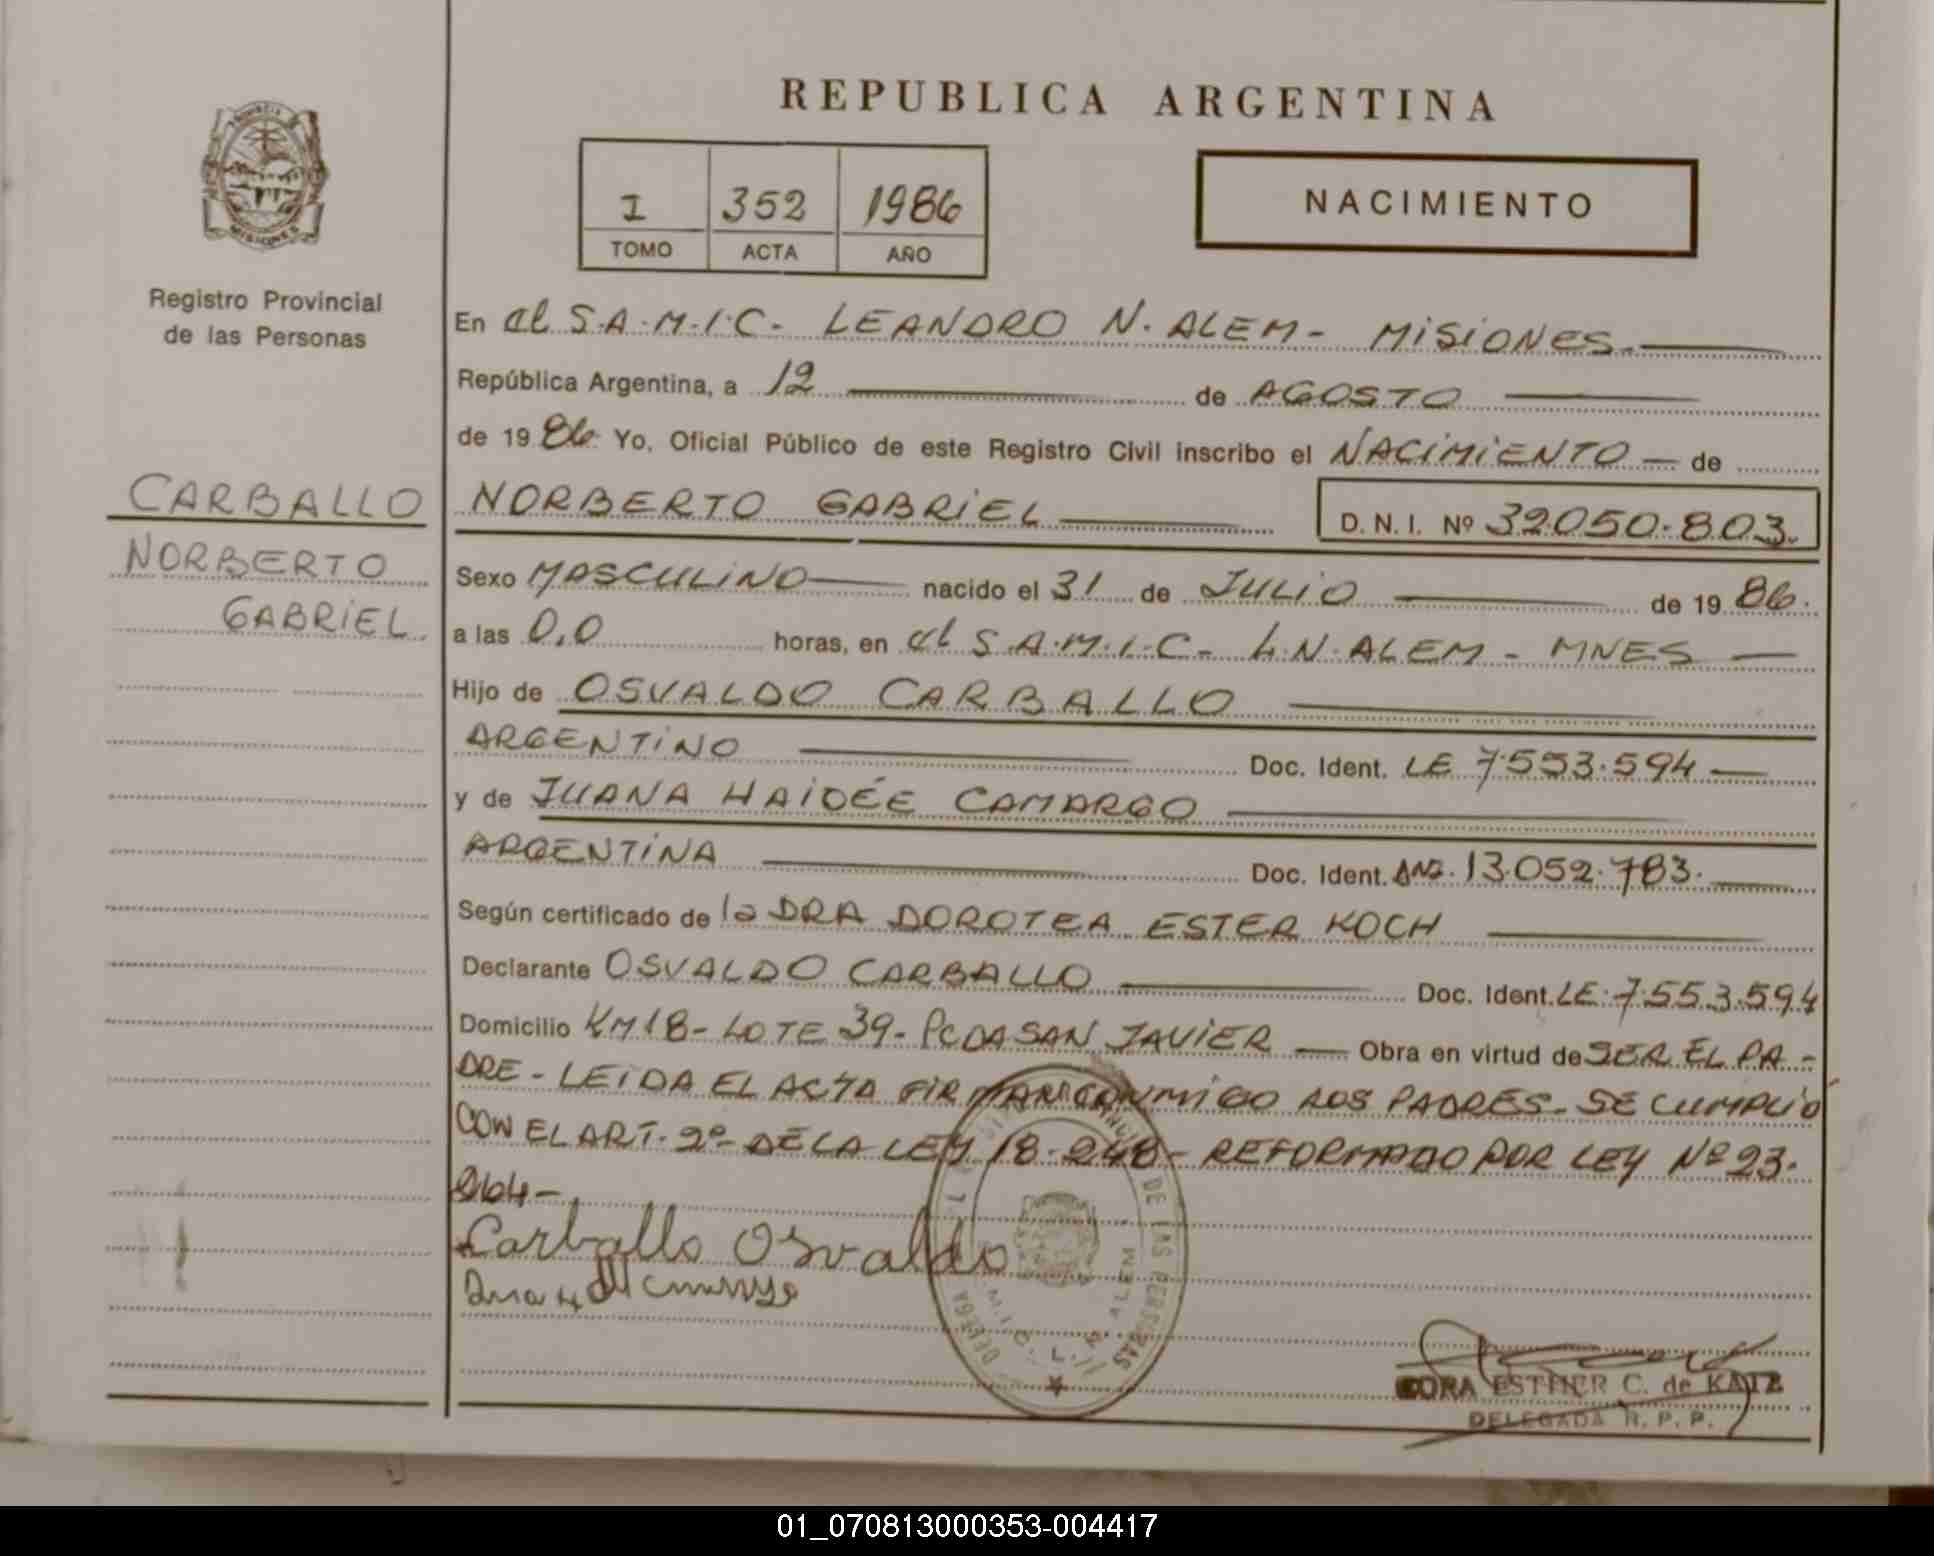 REPUBLICA ARGENTINA
I 352 1986
TOMO ACTA AÑO
NACIMIENTO
MISIONES
Registro Provincial
de las Personas
CARBALLO
NORBERTO
GABRIEL.
En el S.A.M.I.C. LEANDRO N. ALEM - MISIONES.
República Argentina, a 12 de AGOSTO
de 1986. Yo, Oficial Público de este Registro Civil inscribo el NACIMIENTO de
NORBERTO GABRIEL D.N.I. Nº 32.050.803.
Sexo MASCULINO nacido el 31 de JULIO de 1986.
a las 0,0 horas, en el S.A.M.I.C. L.N. ALEM - MNES
Hijo de OSVALDO CARBALLO
ARGENTINO Doc. Ident. LE 7.553.594
y de JUANA HAIDÉE CAMARGO
ARGENTINA Doc. Ident. DNI. 13.052.783.
Según certificado de la DRA DOROTEA ESTER KOCH
Declarante OSVALDO CARBALLO Doc. Ident. LE. 7.553.594
Domicilio KM 18 - LOTE 39 - PCDA SAN JAVIER Obra en virtud de SER EL PA-
DRE - LEIDA EL ACTA FIRMAN CONMIGO LOS PADRES. SE CUMPLIÓ
CON EL ART. 2º DE LA LEY 18.248 - REFORMADO POR LEY Nº 23.
264 -
Carballo Osvaldo
DE LAS PERSONAS
L. N. ALEM
ESTHER C. de KATZ
DELEGADA R. P. P.
01_070813000353-004417